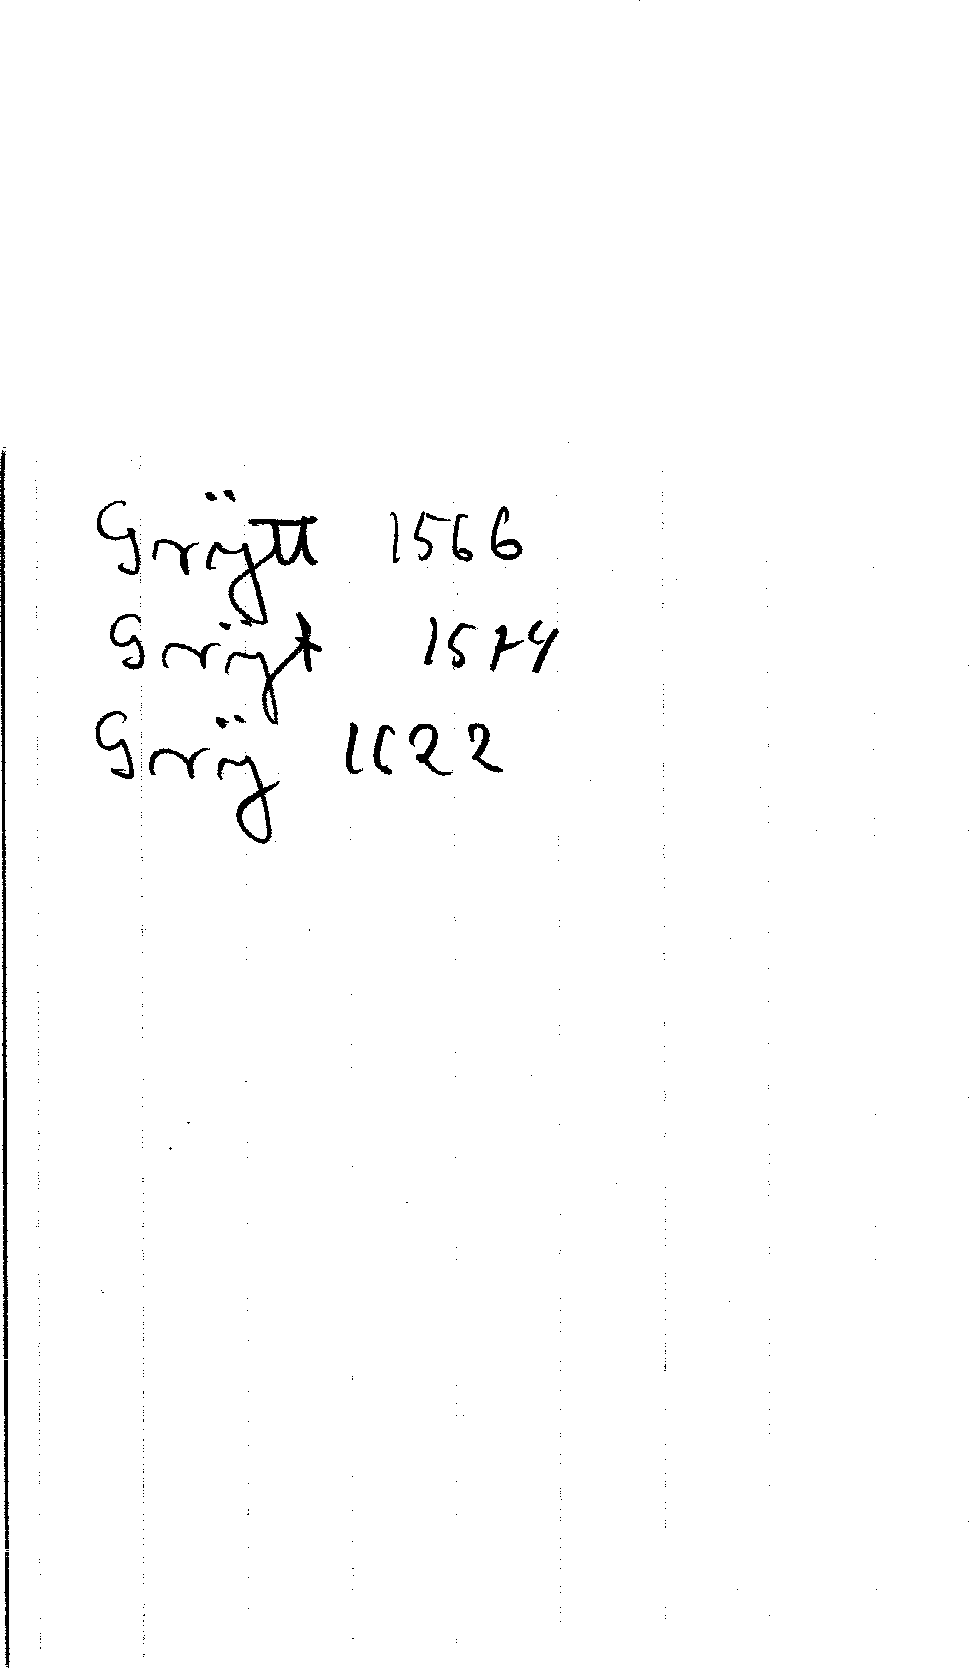 Grÿtt 1566
Grÿt 1574
Grÿ 1622